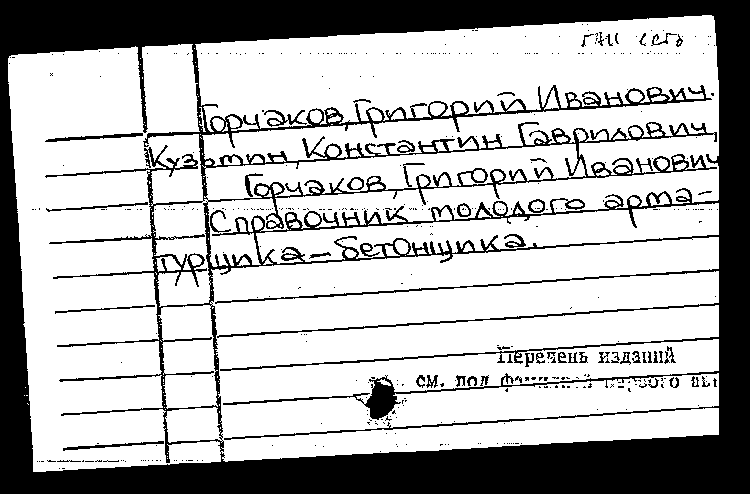 Горчаков, Григорий Иванович.
Кузьмин, Константин Гаврилович,
Горчаков, Григорий Иванович
Справочник молодого арма-
турщика-бетонщика.
Перечень изданий
см. под фамилией первого